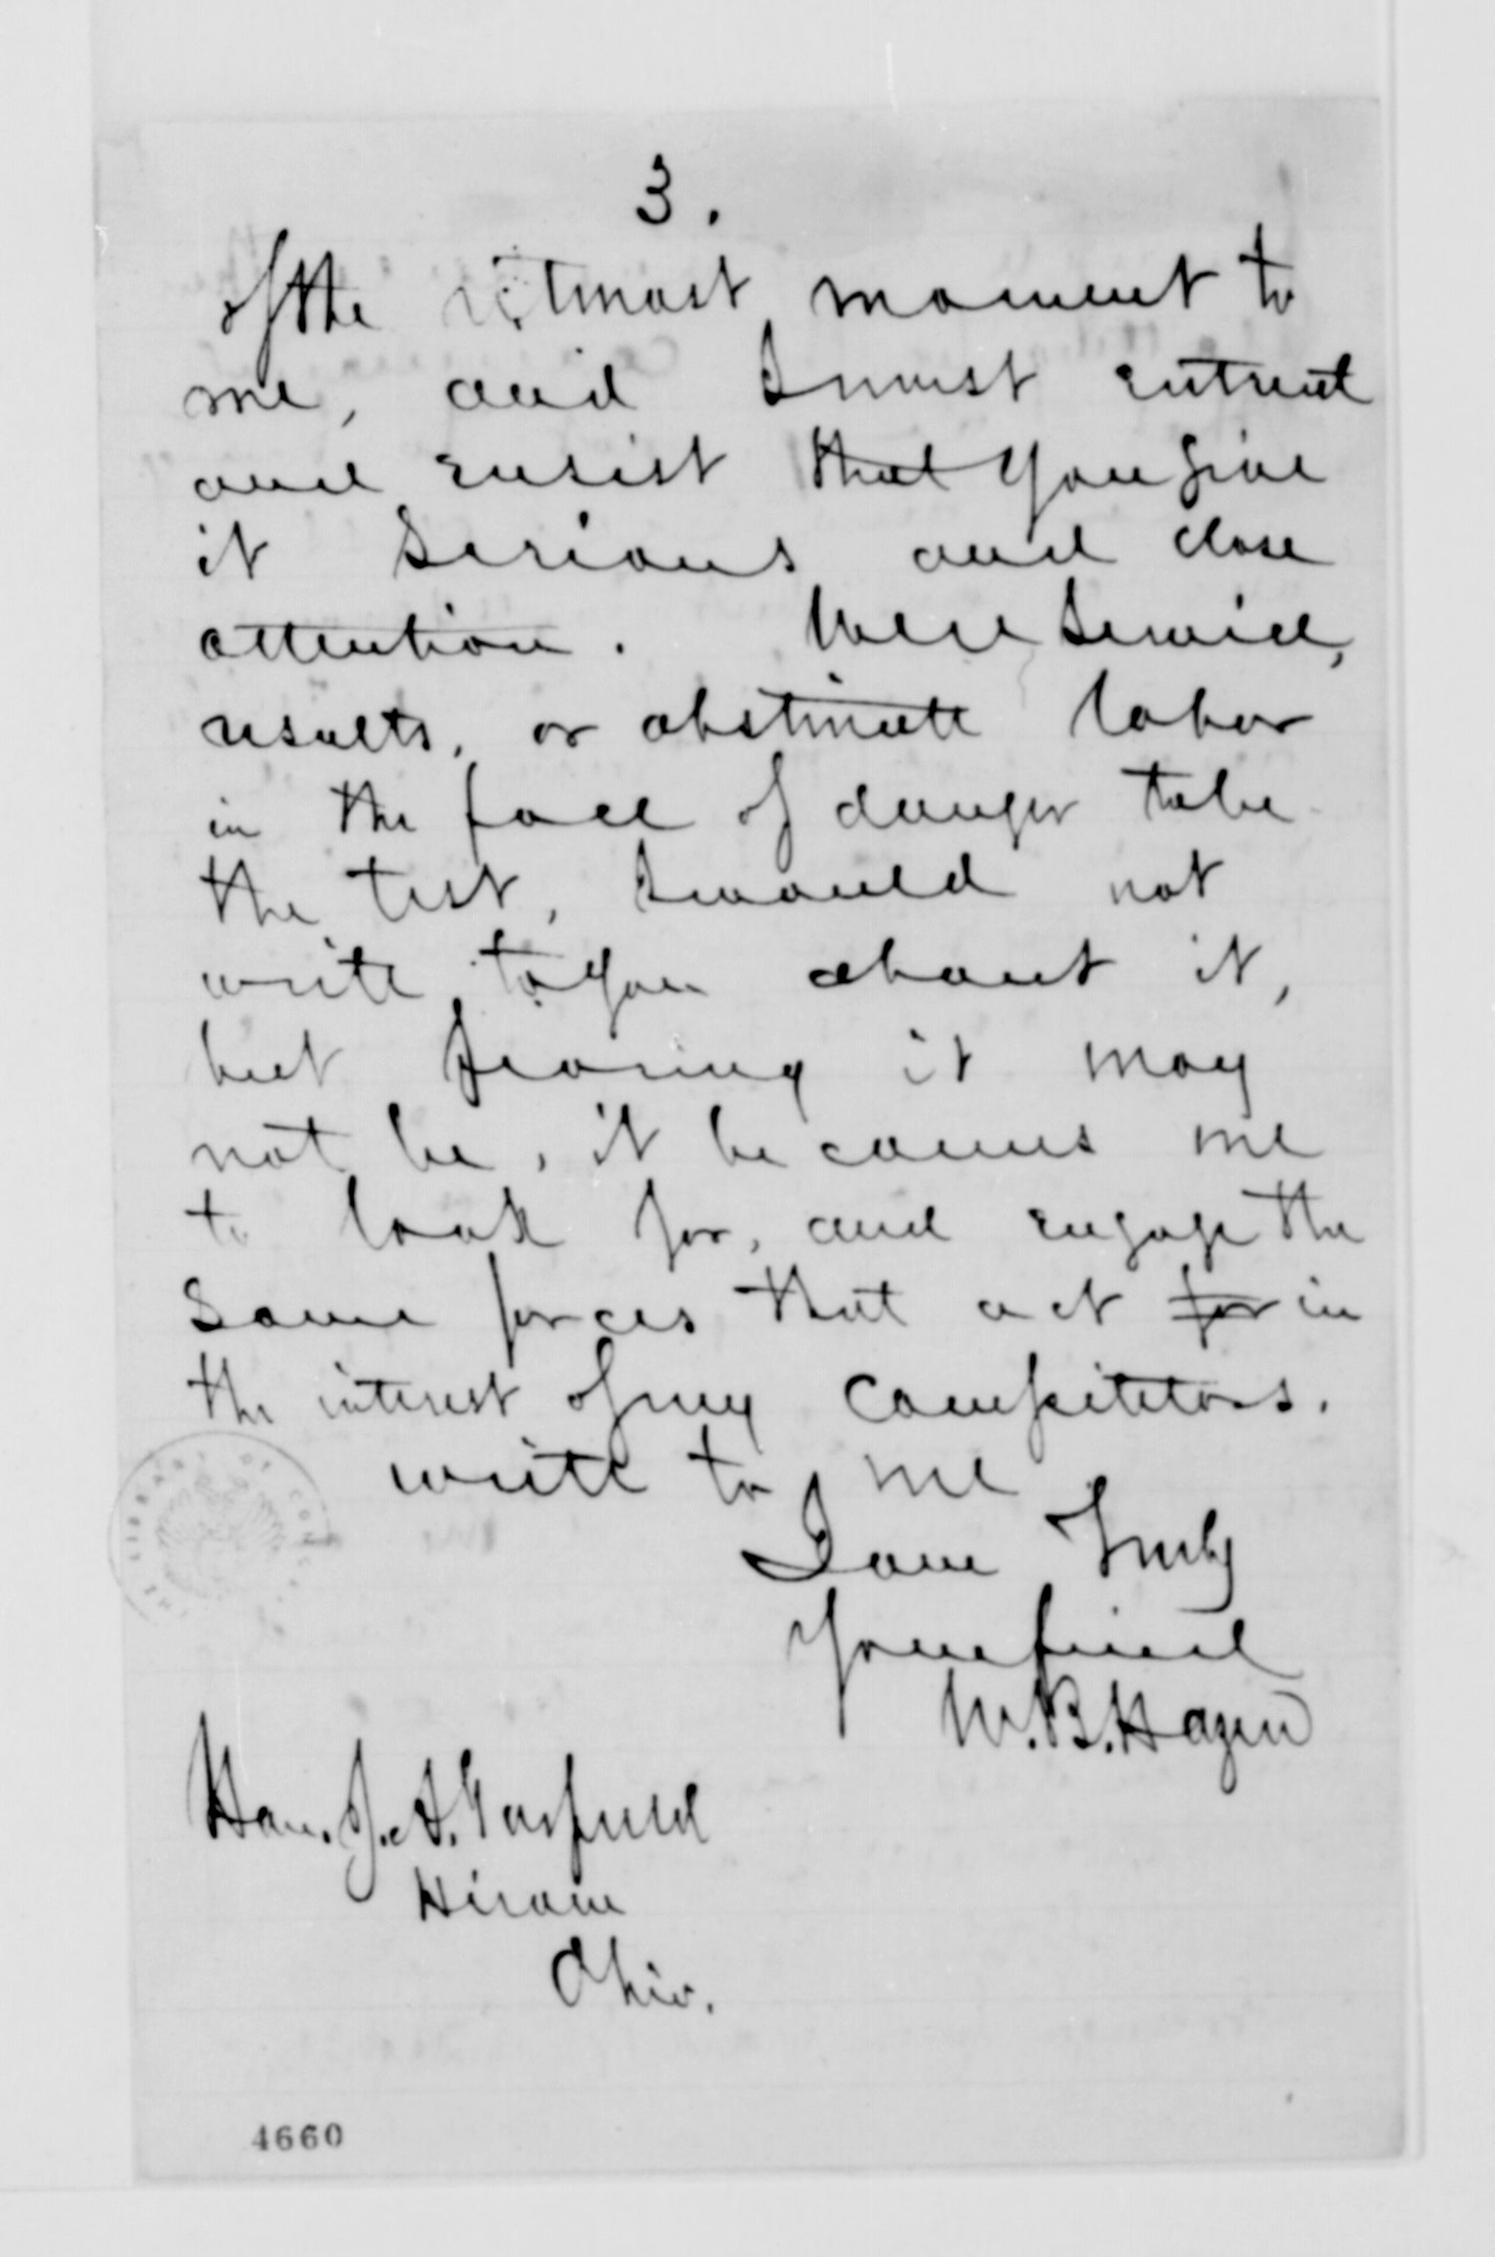 3.
of the utmost moment to
me, and I must entreat
and ensist that you give
it serious and close
attention. Were Service,
results, or obstinate labor
in the face of danger to be
the test, I would not
write to you about it,
but fearing it may
not be, it becomes me
to look for, and engage the
same forces that act for in
the interest of my competitors.
write to me
I am Truly
Your friend
W. B. Hazen
Hon. J. A. Garfield
Hiram
Ohio.
THE LIBRARY OF CONGRESS
4660